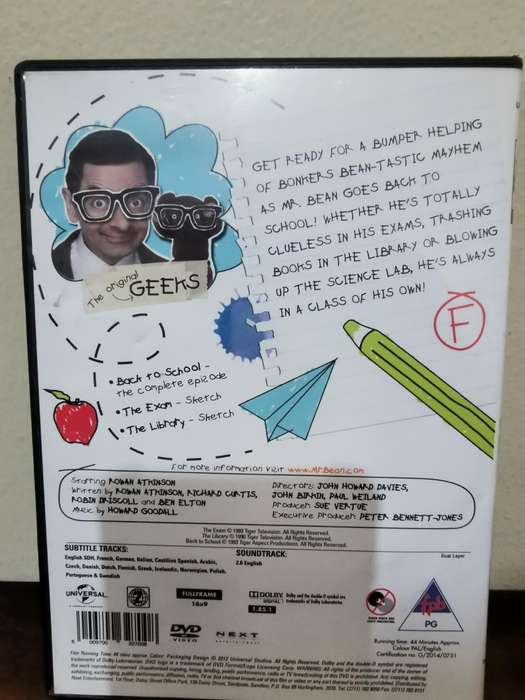 GET READY FOR A BUMPER HELPING
OF BONKERS BEAN-TASTIC MAYHEM
AS MR. BEAN GOES BACK TO
SCHOOL! WHETHER HE'S TOTALLY
CLUELESS IN HIS EXAMS, TRASHING
BOOKS IN THE LIBRARY OR BLOWING
UP THE SCIENCE LAB, HE'S ALWAYS
IN A CLASS OF HIS OWN!
F
The original
GEEKS
• Back to School -
the complete epizode
• The Exam - Sketch
• The Library - Sketch
For more information visit www.MrBean.com
Starring ROWAN ATKINSON
Written by ROWAN ATKINSON, RICHARD CURTIS,
ROBIN DRISCOLL and BEN ELTON
Music by HOWARD GOODALL
Directors: JOHN HOWARD DAVIES,
JOHN BIRKIN, PAUL WEILAND
Producer SUE VERTUE
Executive Producer PETER BENNETT-JONES
The Exam © 1990 Tiger Television. All Rights Reserved.
The Library © 1990 Tiger Television. All Rights Reserved.
Back to School © Tiger Aspect Productions. All Rights Reserved.
SUBTITLE TRACKS:
English SDH, French, German, Italian, Castilian Spanish, Arabic,
Czech, Danish, Dutch, Finnish, Greek, Icelandic, Norwegian, Polish,
Portuguese & Swedish
SOUNDTRACK:
2.0 English
Dual Layer
UNIVERSAL
2
FULLFRAME
16x9
DOLBY
DIGITAL
Dolby and the double-D symbol are
trademarks of Dolby Laboratories
1.45.1
DVD
VIDEO
NEXT
ENTERTAINMENT
fpb
PG
Running time: 44 Minutes Approx.
Colour PAL/English
Certification no. G/2014/0751